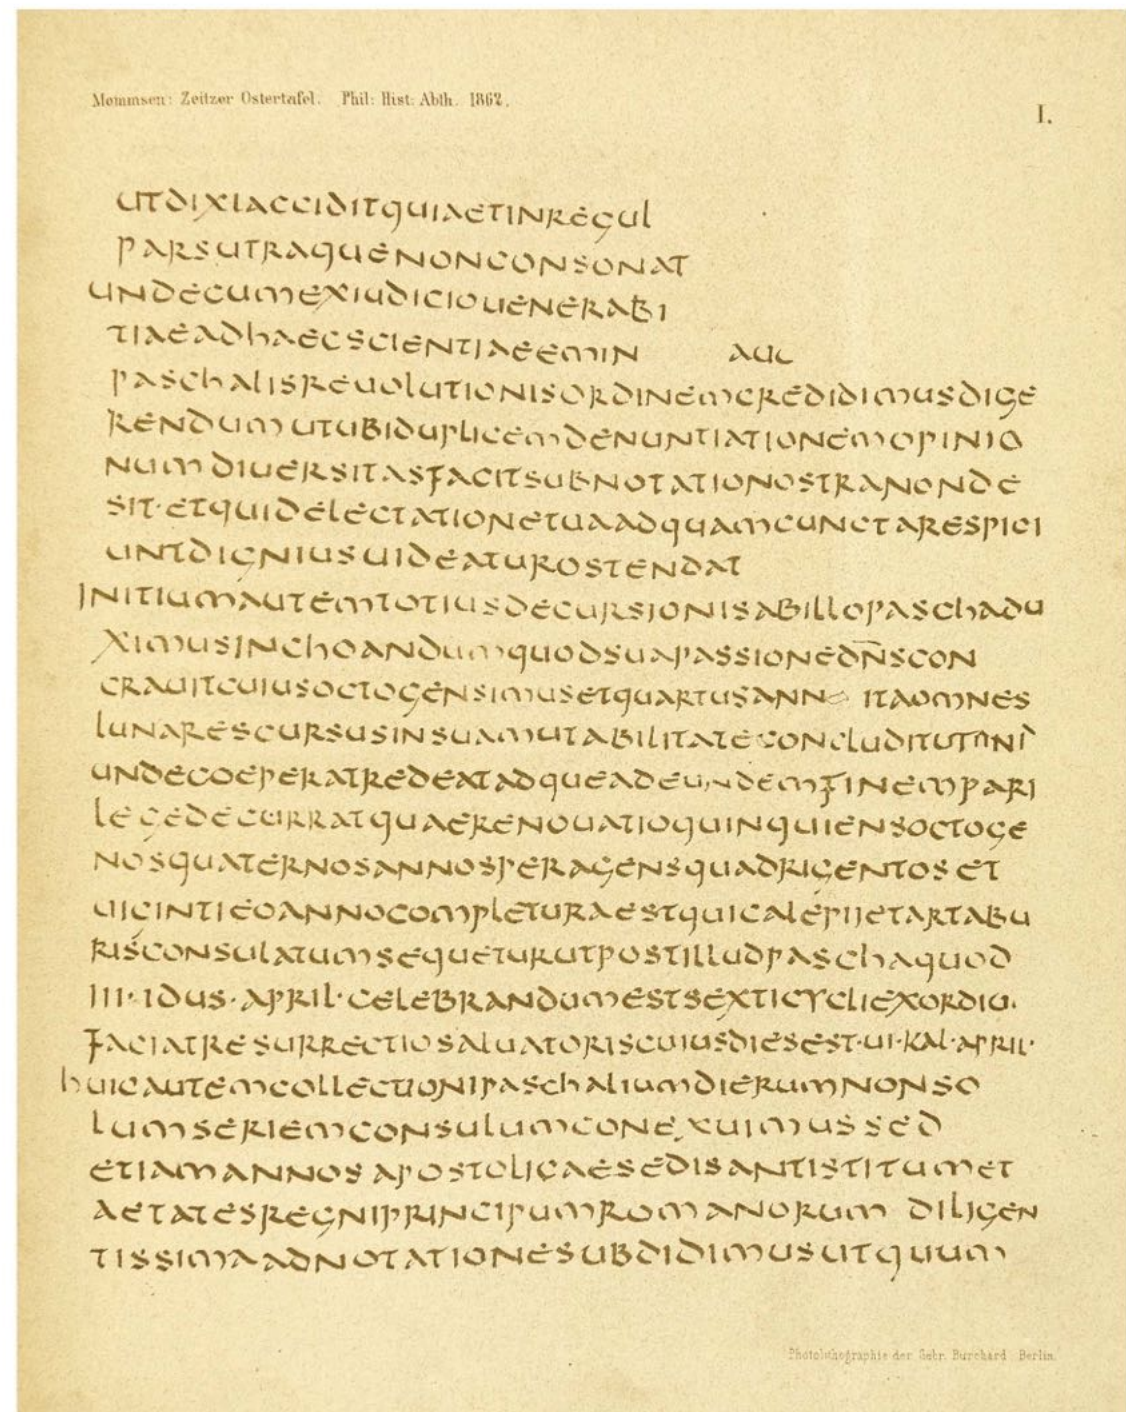 Mommsen: Zeitzer Ostertafel. Phil: Hist: Abth. 1862.
I.
UTDIXIACCIDITQUIAETINREGUL
PARSUTRAQUENONCONSONAT
UNDECUMEXIUDICIOUENERABI
TIAEADHAECSCIENTIAEEMIN AUC
PASCHALISREUOLUTIONISORDINEMCREDIDIMUSDIGE
RENDUMUTUBIDUPLICEMDENUNTIATIONEMOPINIO
NUMDIUERSITASFACITSUBNOTATIONOSTRANONDE
SIT·ETQUIDELECTATIONETUAADQQAMCUNCTARESPICI
UNTDIGNIUSUIDEATUROSTENDAT
INITIUMAUTEMTOTIUSDECURSIONISABILLOPASCHADU
XIMUSINCHOANDUMQUODSUAPASSIONEDN̅SCON
CRAUITCUIUSOCTOGENSIMUSETQUARTUSANNO ITAOMNES
LUNARESCURSUSINSUAMUTABILITATECONCLUDITUT
UNDECOEPERATREDEATADQUEADEUNDEMFINEMPARI
LEGEDECURRATQUAERENOUATIOQUINQUIENSOCTOGE
NOSQUATERNOSANNOSPERAGENSQUADRIGENTOSET
UIGINTIEOANNOCOMPLETURAESTQUICALEPIIETARTABU
RISCONSULATUMSEQUETURUTPOSTILLUDPASCHAQUOD
III·IDUS·APRIL·CELEBRANDUMESTSEXTICYCLIEXORDIU·
FACIATRESURRECTIOSALUATORISCUIUSDIESEST·UI·KAL·APRIL·
HUICAUTEMCOLLECTIONIPASCHALIUMDIERUMNONSO
LUMSERIEMCONSULUMCONEXUIMUSSED
ETIAMANNOSAPOSTOLICAESEDISANTISTITUMET
AETATESREGNIPRINCIPUMROMANORUM DILIGEN
TISSIMAADNOTATIONESUBDIDIMUSUTQUUM
Photolithographie der Gebr. Burchard Berlin.